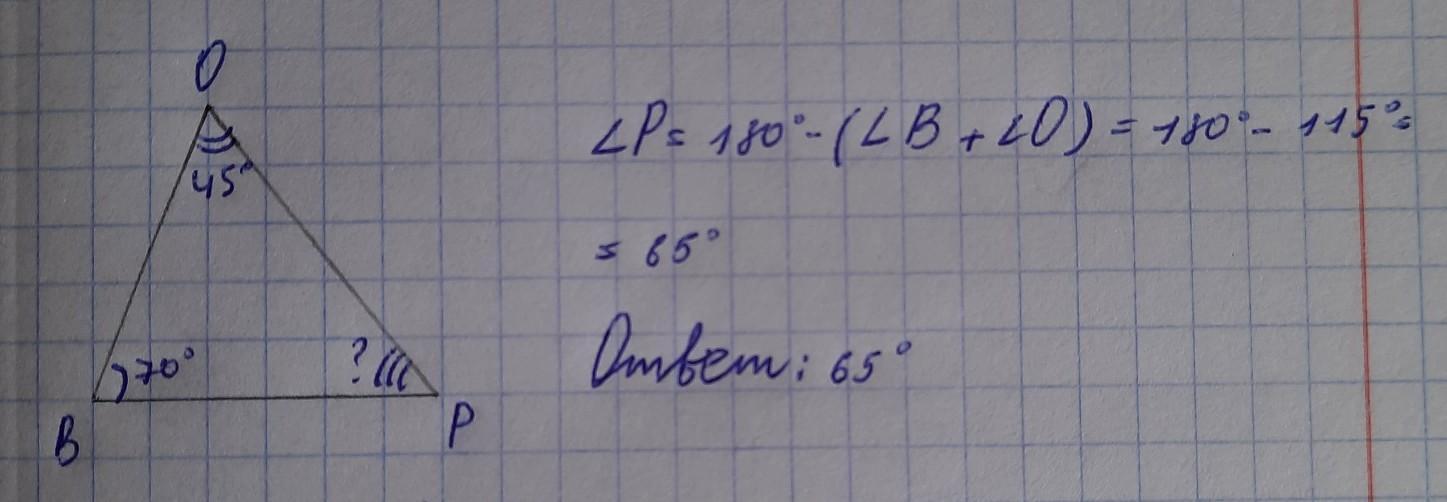 O
45°
70°
?
B
P
∠P = 180° - (∠B + ∠O) = 180° - 115° =
= 65°
Ответ: 65°